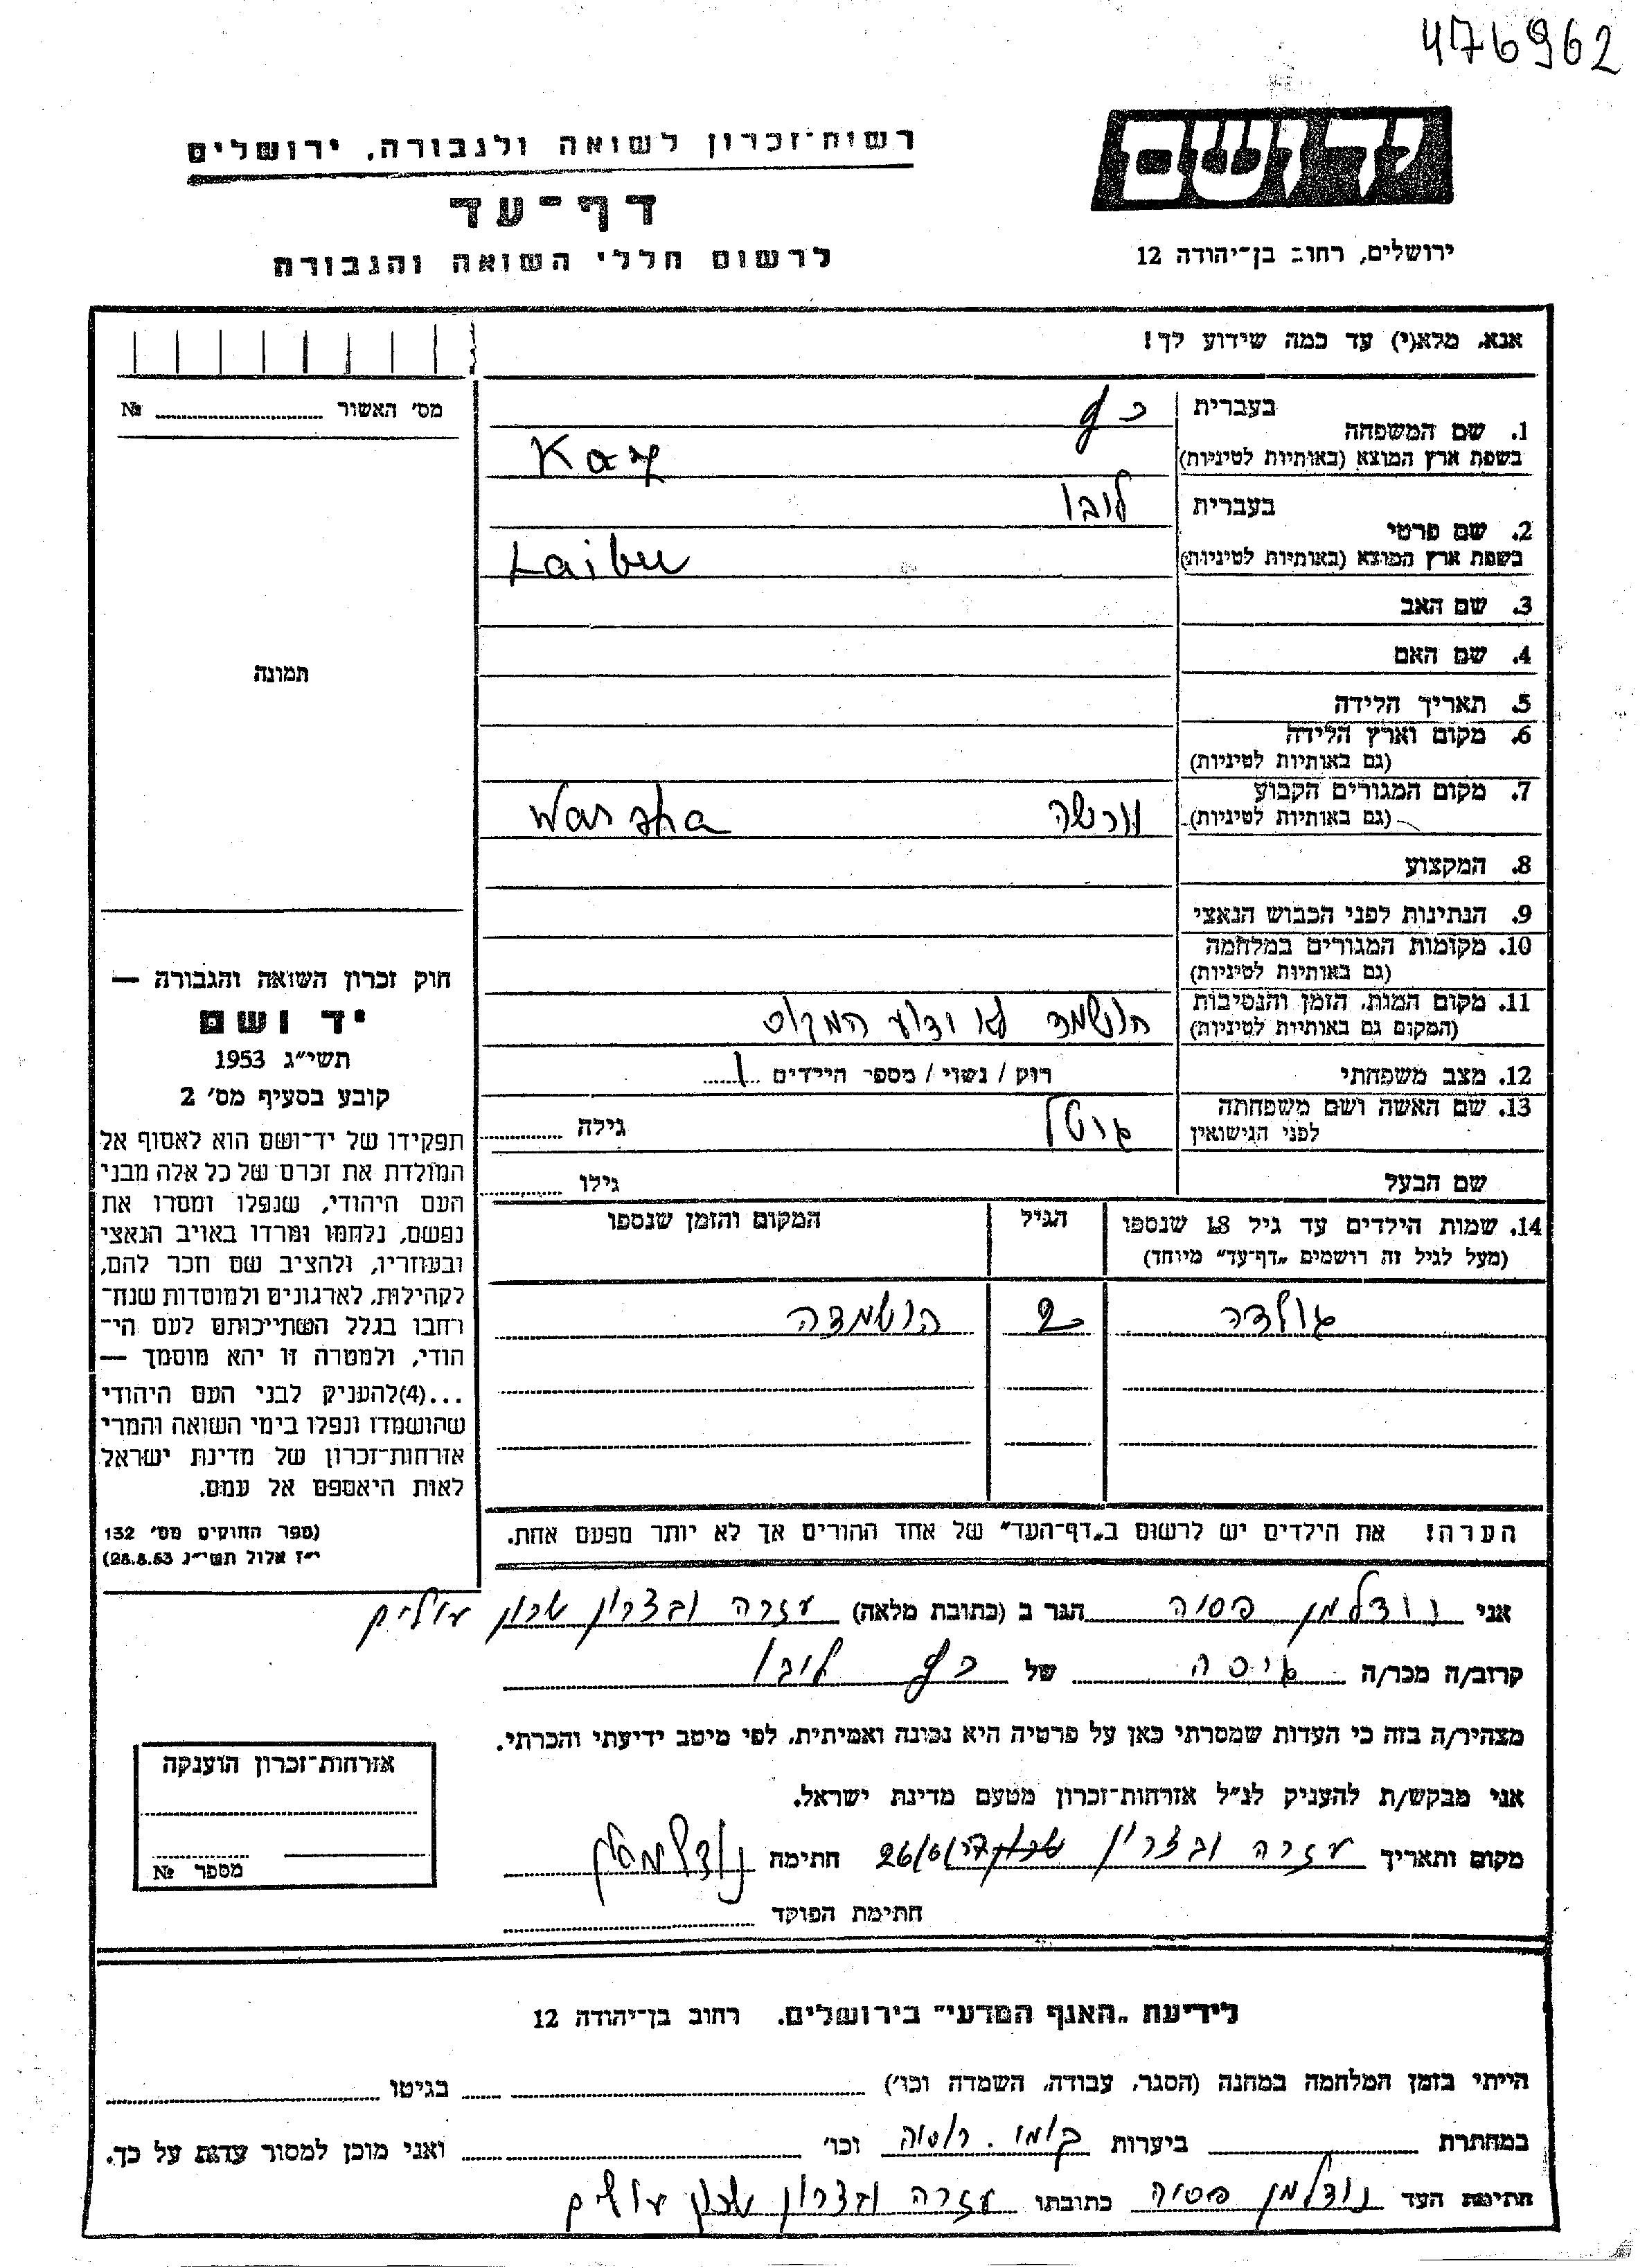 476962
יד ושם
רשות־זכרון לשואה ולגבורה, ירושלים
דף־עד
לרשום חללי השואה והגבורה
ירושלים, רחוב בן־יהודה 12
אנא, מלא(י) עד כמה שידוע לך!
מס׳ האשור № 
תמונה
1. שם המשפחה
בעברית
כץ
בשפת ארץ המוצא (באותיות לטיניות)
Kaz
2. שם פרטי
בעברית
לובו
בשפת ארץ המוצא (באותיות לטיניות)
Laibu
3. שם האב
4. שם האם
5. תאריך הלידה
6. מקום וארץ הלידה
(גם באותיות לטיניות)
7. מקום המגורים הקבוע
(גם באותיות לטיניות)
וורשה Warsha
8. המקצוע
9. הנתינות לפני הכבוש הנאצי
10. מקומות המגורים במלחמה
(גם באותיות לטיניות)
11. מקום המות, הזמן והנסיבות
(המקום גם באותיות לטיניות)
הושמד לא ודוע המקום
12. מצב משפחתי
רוק / נשוי / מספר הילדים 1
13. שם האשה ושם משפחתה
לפני הנישואין
גוטל
גילה
שם הבעל
גילו
14. שמות הילדים עד גיל 18 שנספו
(מעל לגיל זה רושמים „דף־עד״ מיוחד)
הגיל
המקום והזמן שנספו
גולדה 2 הושמדה
הערה! את הילדים יש לרשום ב„דף־העד״ של אחד ההורים אך לא יותר מפעם אחת.
חוק זכרון השואה והגבורה —
יד ושם
תשי״ג 1953
קובע בסעיף מס׳ 2
תפקידו של יד־ושם הוא לאסוף אל
המולדת את זכרם של כל אלה מבני
העם היהודי, שנפלו ומסרו את
נפשם, נלחמו ומרדו באויב הנאצי
ובעוזריו, ולהציב שם וזכר להם,
לקהילות, לארגונים ולמוסדות שנח־
רבו בגלל השתייכותם לעם הי־
הודי, ולמטרה זו יהא מוסמך —
...(4)להעניק לבני העם היהודי
שהושמדו ונפלו בימי השואה והמרי
אזרחות־זכרון של מדינת ישראל
לאות היאספם אל עמם.
(ספר החוקים מס׳ 132
י״ז אלול תשי״ג 28.8.53)
אני נודלמן פסיה הגר ב (כתובת מלאה) עזרה ובצרון שכון עולים
קרוב/ה מכר/ה גיסה של כץ לובו
מצהיר/ה בזה כי העדות שמסרתי כאן על פרטיה היא נכונה ואמיתית, לפי מיטב ידיעתי והכרתי.
אני מבקש/ת להעניק לנ״ל אזרחות־זכרון מטעם מדינת ישראל.
מקום ותאריך עזרה ובצרון חתימה נודלמן
חתימת הפוקד
אזרחות־זכרון הוענקה
מספר №
לידיעת „האגף המדעי״ בירושלים, רחוב בן־יהודה 12
הייתי בזמן המלחמה במחנה (הסגר, עבודה, השמדה וכו׳) בגיטו
במחתרת ביערות רוסיה וכו׳ ואני מוכן למסור עדות על כך.
חתימת העד נודלמן פסיה כתובתו עזרה ובצרון שכון עולים